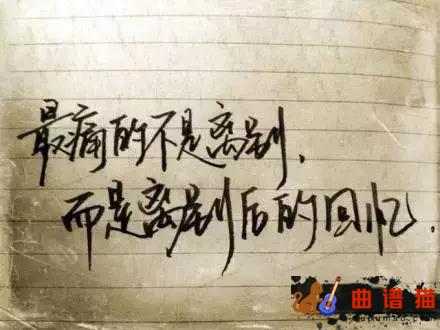 最痛的不是离别,
而是离别后的回忆.
曲谱猫